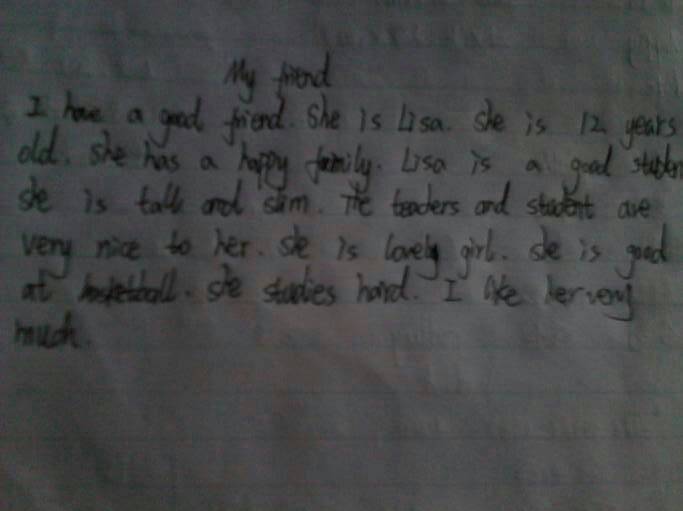 My friend
I have a good friend. She is Lisa. She is 12 years
old. She has a happy family. Lisa is a good studen
She is tall and slim. The teachers and student are
very nice to her. She is lovely girl. She is good
at basketball. She studies hard. I like her very
much.